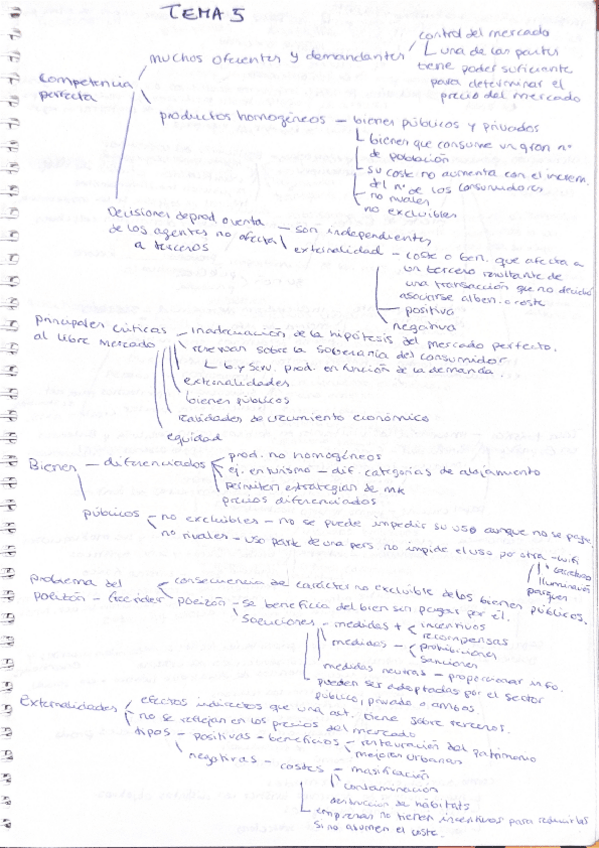 TEMA 5
Competencia perfecta
muchos oferentes y demandantes
control del mercado
una de las partes
tiene poder suficiente
para determinar el
precio del mercado
productos homogéneos — bienes públicos y privados
bienes que consume un gran nº
de población
su coste no aumenta con el increm.
del nº de los consumidores
no rivales
no excluibles
Decisiones de prod. o venta
de los agentes no afectan
a terceros
son independientes
externalidad — coste o ben. que afecta a
un tercero resultante de
una transacción que no decidió
asociarse al ben. o coste
positiva
negativa
principales críticas
al libre mercado
inadecuación de la hipótesis del mercado perfecto.
reservas sobre la soberanía del consumidor
b. y serv. prod. en función de la demanda.
externalidades
bienes públicos
de crecimiento económico
equidad
Bienes — diferenciados
prod. no homogéneos
ej. en turismo — dif. categorías de alojamiento
permiten estrategias de mk
precios diferenciados
públicos — no excluibles — no se puede impedir su uso aunque no se pague
no rivales — uso parte de una pers. no impide el uso por otra — wifi
carreteras
iluminación
parques
problema del
polizón - free rider
consecuencia del carácter no excluible de los bienes públicos.
polizón — se beneficia del bien sin pagar por él.
soluciones — medidas +
incentivos
recompensas
medidas -
prohibiciones
sanciones
medidas neutras — proporcionar info.
pueden ser adoptadas por el sector
público, privado o ambos.
Externalidades
efectos indirectos que una act. tiene sobre terceros.
no se reflejan en los precios del mercado
tipos — positivas — beneficios — restauración del patrimonio
mejoras urbanas
negativas — costes — masificación
contaminación
destrucción de hábitats
empresas no tienen incentivos para reducirlas
si no asumen el coste.